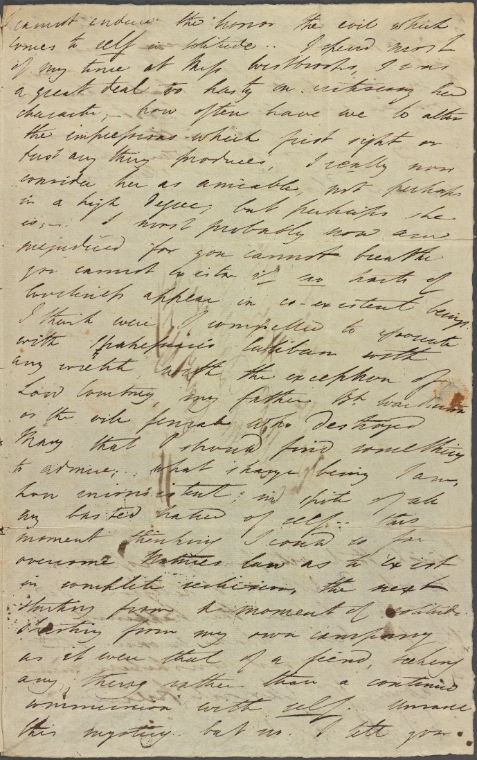 cannot endure the horror the evil which
comes to self in solitude.. I spend most
of my time at Miss Westbrooks, I was
a great deal too hasty in criticising her
character,— how often have we to alter
the impressions which first sight or
first any thing produces, I really now
consider her as amiable, not perhaps
in a high degree, but perhaps she
is,—. I most probably now am
prejudiced for you cannot breathe
you cannot exist if no traits of
loveliness appear in co-existent beings.
I think were I compelled to associate
with Shakespeare's Caliban with
any wretch with the exception of
Lord Courtney, my father, Bp Warburton
or the vile female who destroyed
Mary that I should find something
to admire;.. what strange being I am,
how inconsistent; in spite of all
my boasted hatred of self:. this
moment thinking I could so far
overcome Natures law as to exist
in complete seclusion, the next
starting from a moment of solitude
starting from my own company
as it were that of a fiend, seeking
any thing rather than a continued
communion with self. Unravel
this mystery but no. I tell you